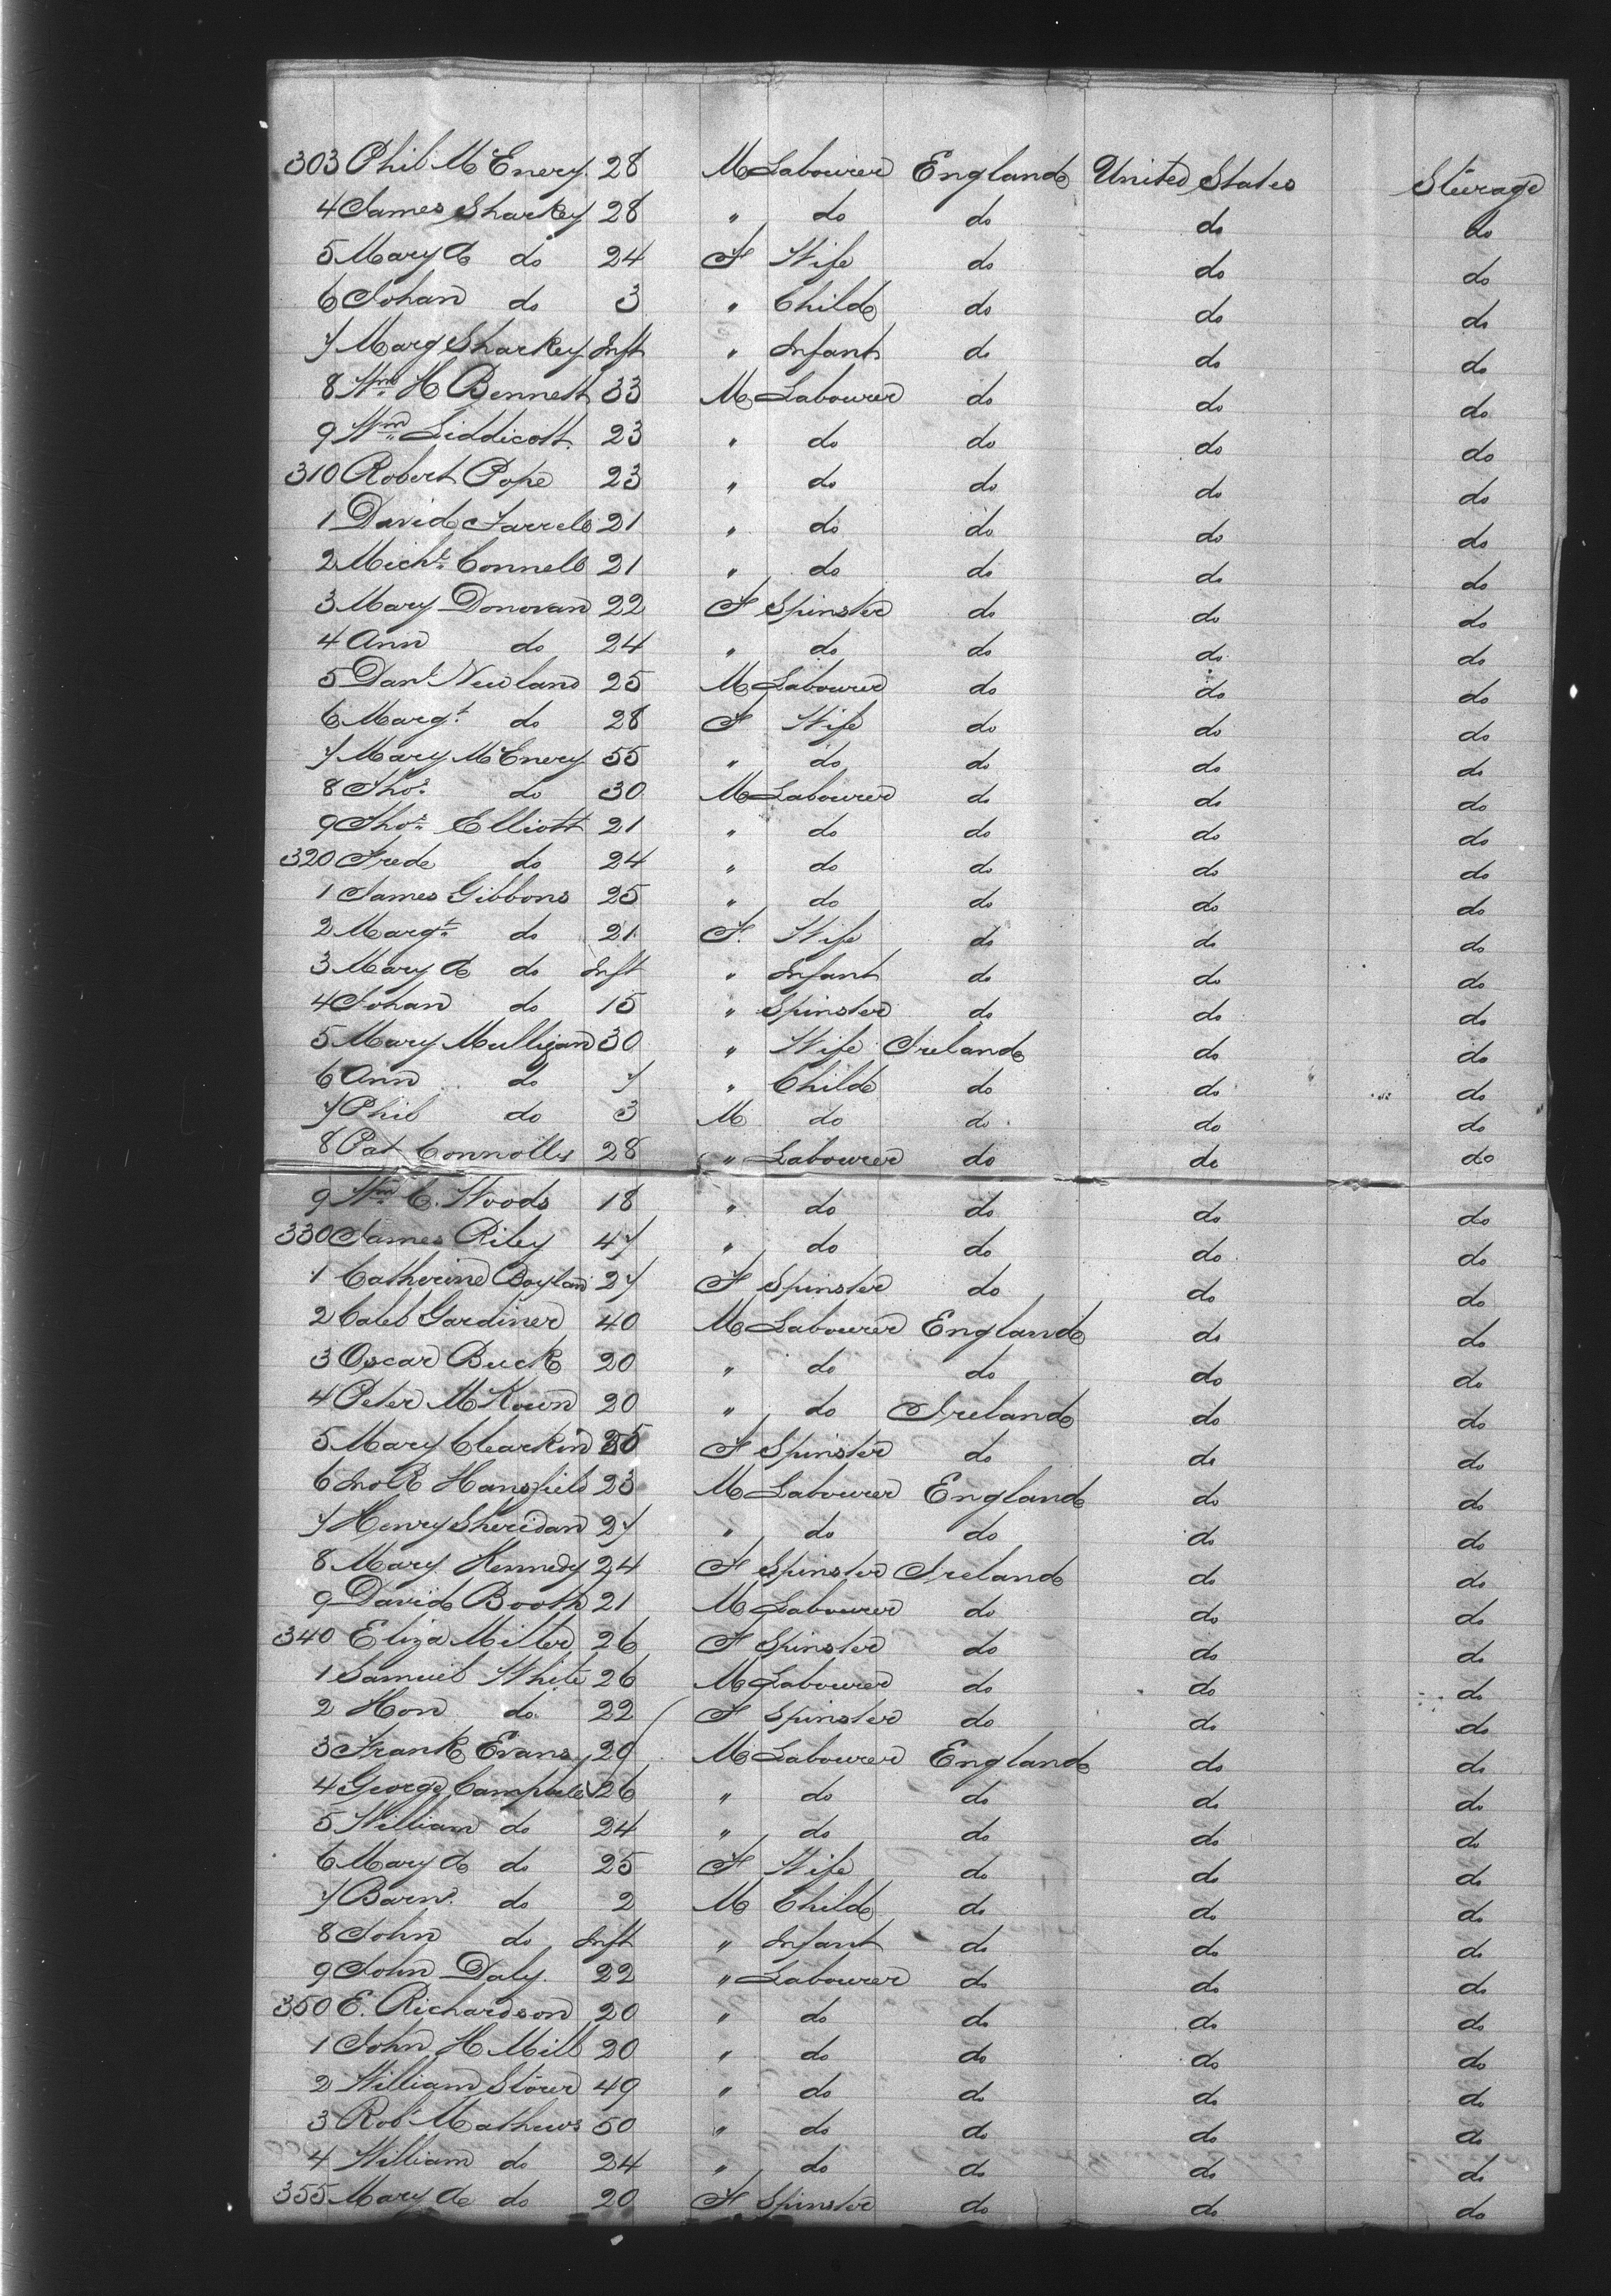 303 Phil McEnery 28 M Labourer England United States Steerage
4 James Sharkey 28 " do do do do
5 Mary A do 24 F Wife do do do
6 Johan do 3 " Child do do do
7 Marg Sharkey Inft " Infant do do do
8 Wm. H Bennett 33 M Labourer do do do
9 Wm. Liddicott 23 " do do do do
310 Robert Pope 23 " do do do do
1 David Farrell 21 " do do do do
2 Michl. Connell 21 " do do do do
3 Mary Donovan 22 F Spinster do do do
4 Ann do 24 " do do do do
5 Danl Newland 25 M Labourer do do do
6 Margt. do 28 F Wife do do do
7 Mary McEnery 55 " do do do do
8 Thos. do 30 M Labourer do do do
9 Thos. Elliott 21 " do do do do
320 Frede do 24 " do do do do
1 James Gibbons 25 " do do do do
2 Margt. do 21 F. Wife do do do
3 Mary A do Inft " Infant do do do
4 Johan do 15 " Spinster do do do
5 Mary Mulligan 30 " Wife Ireland do do
6 Ann do 7 " Child do do do
7 Phil do 3 M do do do do
8 Pat Connolly 28 " Labourer do do do
9 Wm. C. Woods 18 " do do do do
330 James Riley 47 " do do do do
1 Catherine Boylan 27 F Spinster do do do
2 Caleb Gardiner 40 M Labourer England do do
3 Oscar Buck 20 " do do do do
4 Peter McKown 20 " do Ireland do do
5 Mary Clearkin F Spinster do do do
6 Jno R Hansfield 23 M Labourer England do do
7 Henry Sheridan 27 " do do do do
8 Mary Kennedy 24 F Spinster Ireland do do
9 David Booth 21 M Labourer do do do
340 Eliza Miller 26 F Spinster do do do
1 Samuel White 26 M Labourer do do do
2 Hon do 22 F Spinster do do do
3 Frank Evans 20 M Labourer England do do
4 George Campbell 26 " do do do do
5 William do 24 " do do do do
6 Mary A do 25 F Wife do do do
7 Barnd. do 2 M Child do do do
8 John do Inft " Infant do do do
9 John Daly 22 " Labourer do do do
350 E. Richardson 20 " do do do do
1 John H Mill 20 " do do do do
2 William Storer 49 " do do do do
3 Robt Mathews 50 " do do do do
4 William do 24 " do do do do
355 Mary A do 20 F Spinster do do do